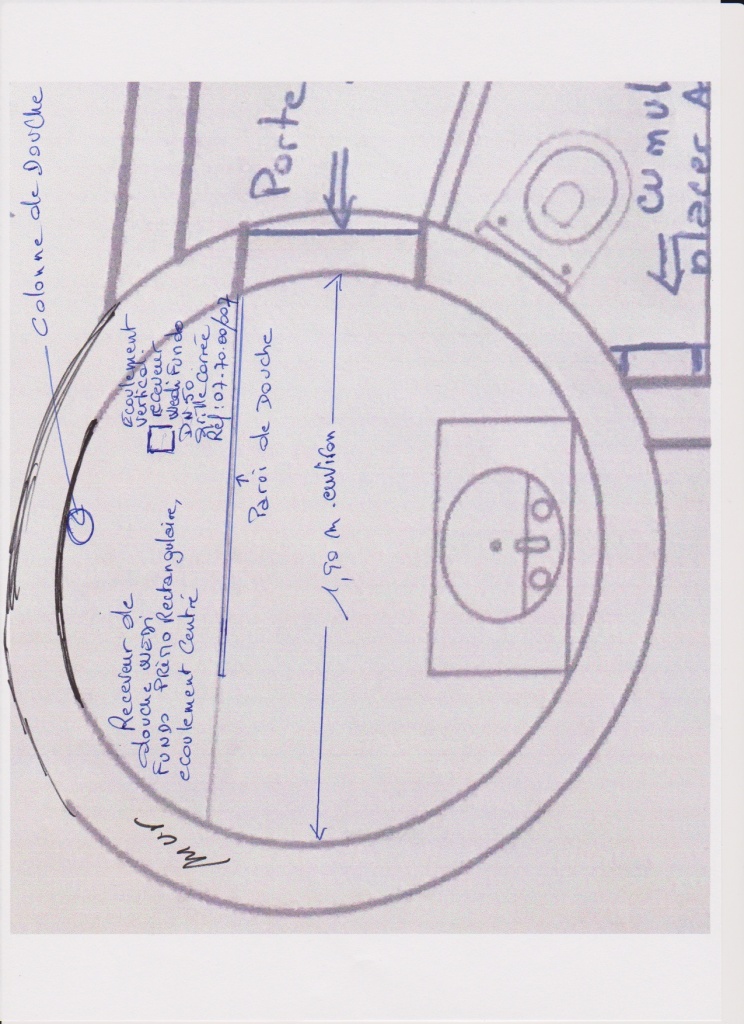 Colonne de Douche
Porte
cumul
placer A
Ecoulement
vertical
receveur
Wedi Fundo
DN-50
grille carrée
Réf: 07.70.00/007
Paroi de Douche
1,90 m. environ
Receveur de
douche WEDI
FUNDO PRIMO Rectangulaire,
ecoulement centré
Mur